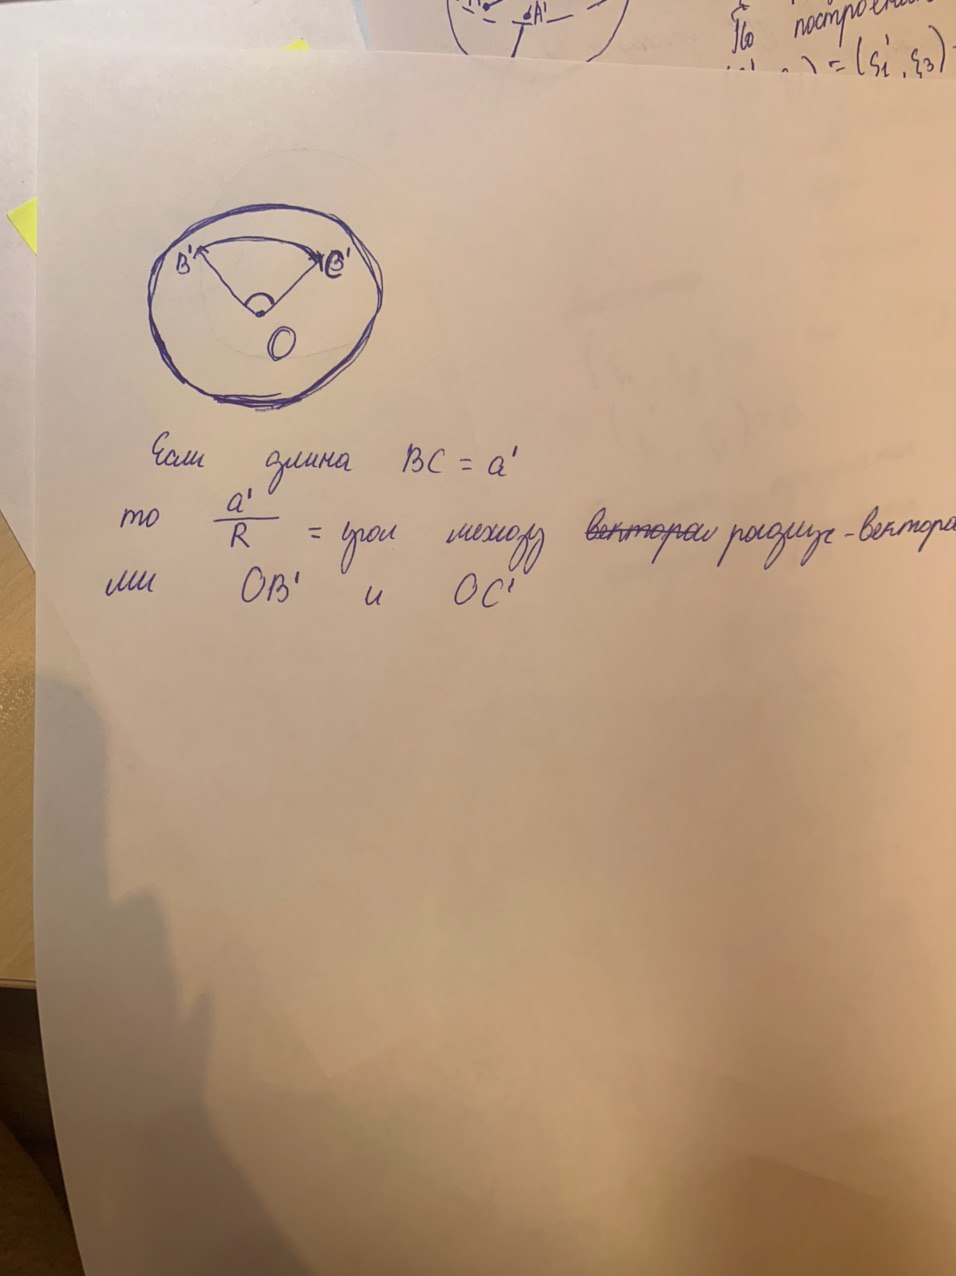 A'
По построени
) = (ξ1', ξ3)
B' C'
O
Если длина BC = a'
то a'/R = угол между радиус-вектора
ми OB' и OC'